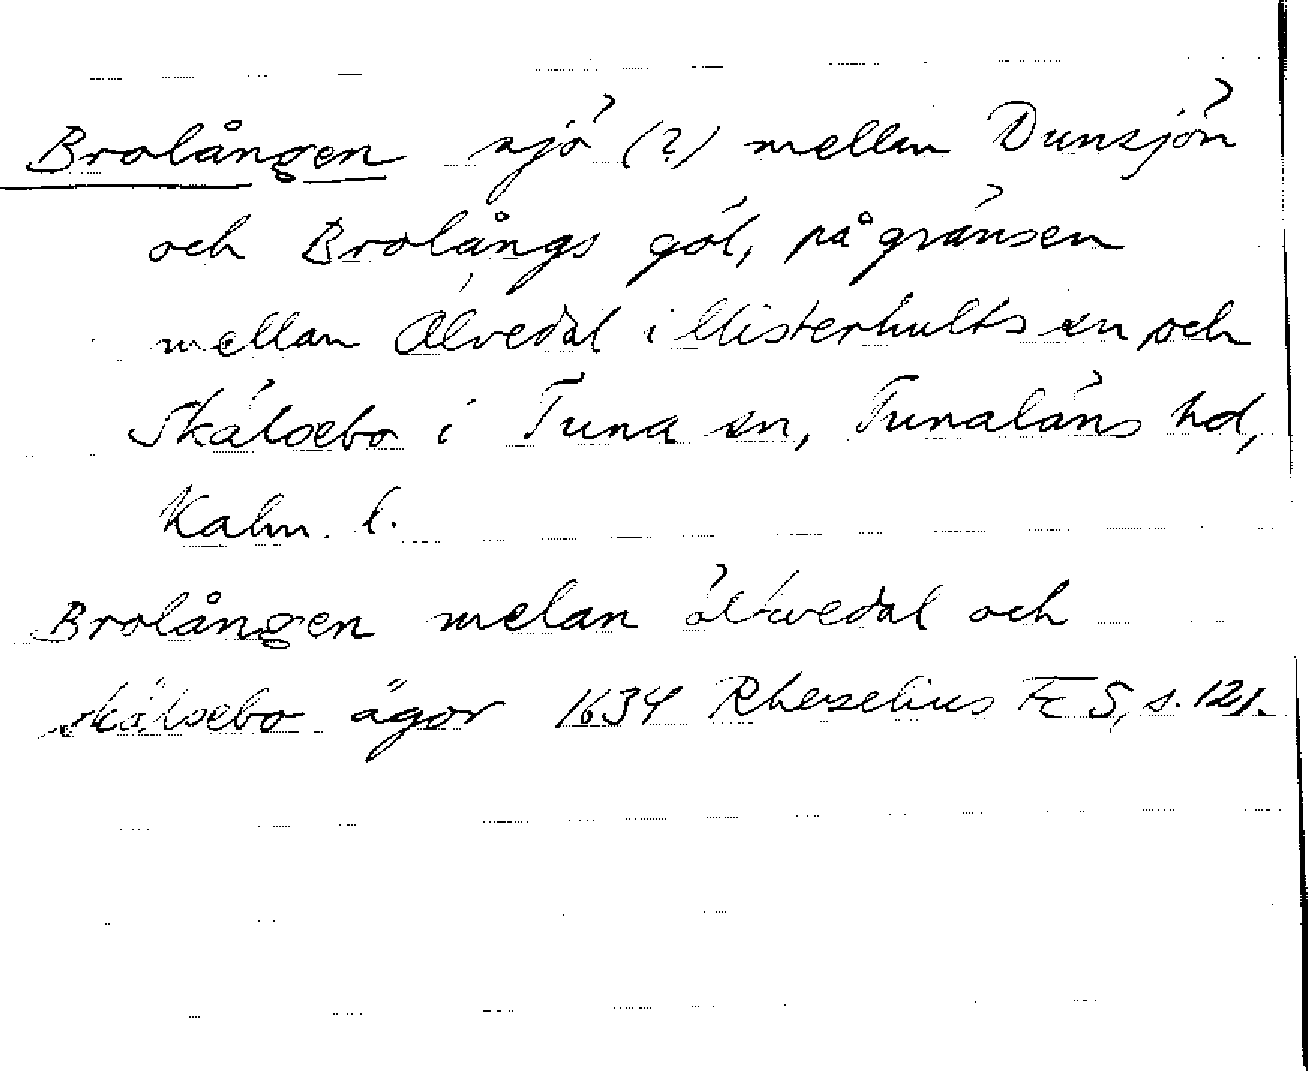 Brolången sjö (?) mellan Dunsjön
och Brolångs göl, på gränsen
mellan Ölvedal i Misterhults sn och
Skälsebo i Tuna sn, Tunaläns hd,
Kalm. l.
Brolången melan öltwedal och
skälsebo ägor 1634 Rhezelius FES, s. 121.